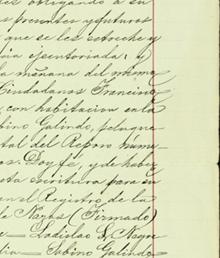 obligando a su
presentes y futuros
que se les estreche y
ia ejecutoriada; y
la mañana del mismo
Ciudadanos Francisco
con habitacion en la
bino Galindo, peluque
tal del Reboro núme
os. Doy fé, y de haber
sta escritura para su
en el Registro de la
de Nayas (Firmado)
e — Ladislao S. Nayre
dia — Sabino Galindo